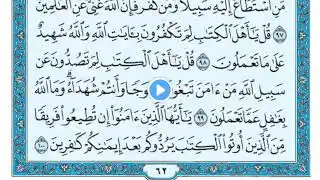 مَنِ ٱسْتَطَاعَ إِلَيْهِ سَبِيلًا وَمَن كَفَرَ فَإِنَّ ٱللَّهَ غَنِىٌّ عَنِ ٱلْعَٰلَمِينَ
٩٧ قُلْ يَٰٓأَهْلَ ٱلْكِتَٰبِ لِمَ تَكْفُرُونَ بِـَٔايَٰتِ ٱللَّهِ وَٱللَّهُ شَهِيدٌ
عَلَىٰ مَا تَعْمَلُونَ ٩٨ قُلْ يَٰٓأَهْلَ ٱلْكِتَٰبِ لِمَ تَصُدُّونَ عَن
سَبِيلِ ٱللَّهِ مَنْ ءَامَنَ تَبْغُونَهَا عِوَجًا وَأَنتُمْ شُهَدَآءُ وَمَا ٱللَّهُ
بِغَٰفِلٍ عَمَّا تَعْمَلُونَ ٩٩ يَٰٓأَيُّهَا ٱلَّذِينَ ءَامَنُوٓا۟ إِن تُطِيعُوا۟ فَرِيقًا
مِّنَ ٱلَّذِينَ أُوتُوا۟ ٱلْكِتَٰبَ يَرُدُّوكُم بَعْدَ إِيمَٰنِكُمْ كَٰفِرِينَ ١٠٠
٦٢